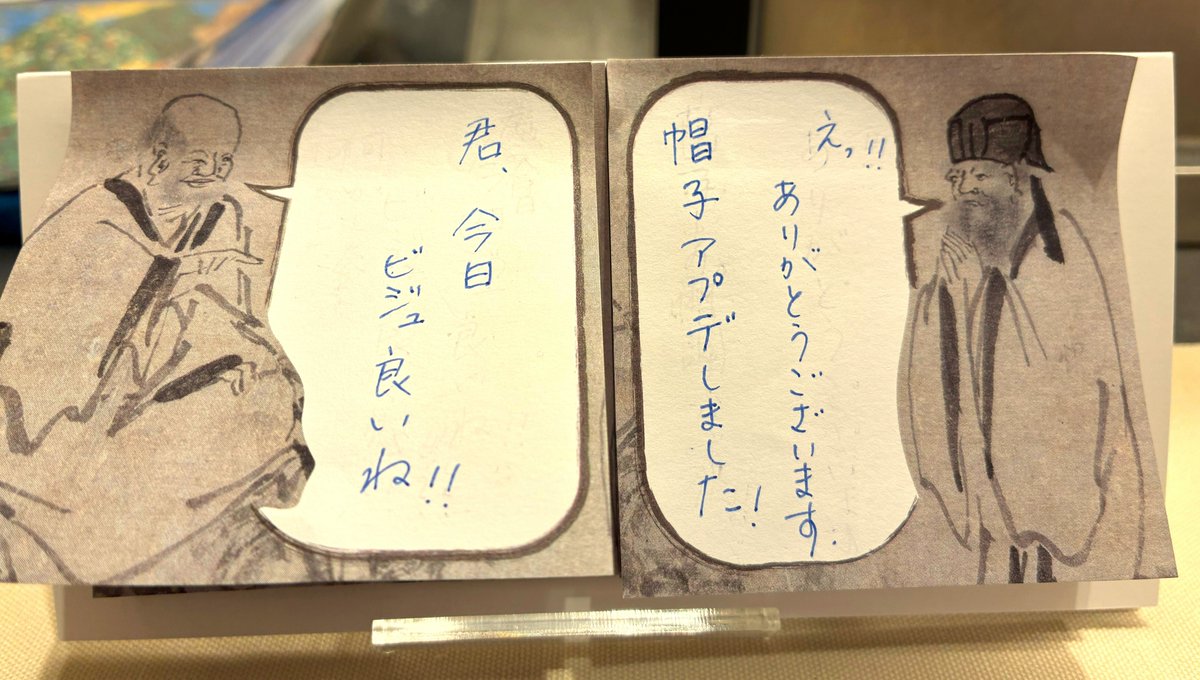 君、今日
ビジュ良いね!!
えっ!!
ありがとうございます.
帽子アプデしました!